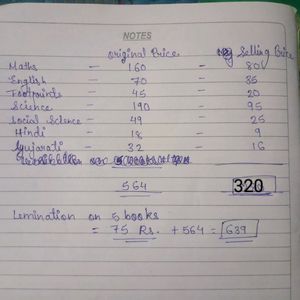 NOTES
Original Price Selling Price
Maths - 160 - 80
English - 70 - 35
Footprints - 45 - 20
Science - 190 - 95
Social Science - 49 - 25
Hindi - 18 - 9
Gujarati - 32 - 16
564 320
Lemination on 5 books
= 75 Rs. + 564 = 639